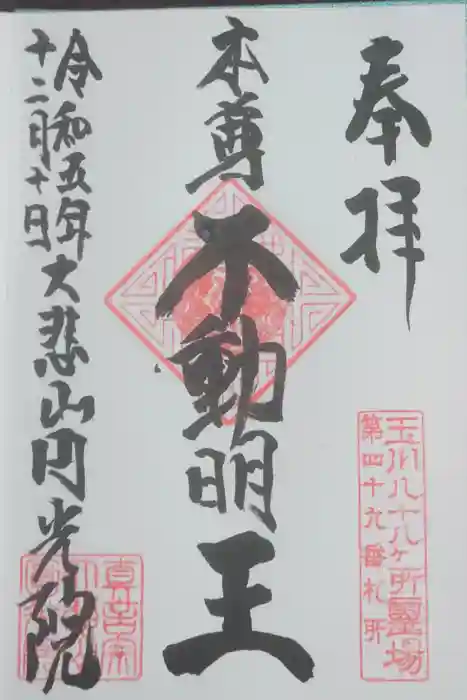 奉拝
玉川八十八ヶ所霊場
第四十九番札所
本尊
不動明王
令和五年
十二月十日
大悲山円光院
真言宗